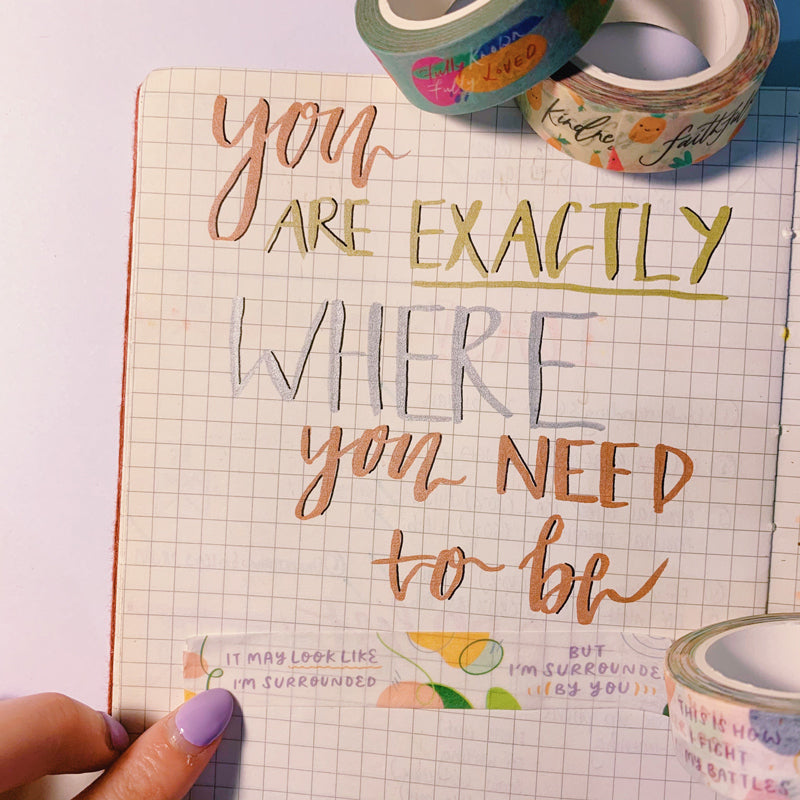 Fully Known
Fully LOVED
Kindne
faithful
you
ARE EXACTLY
WHERE
you NEED
to be
IT MAY LOOK LIKE
I'M SURROUNDED
BUT
I'M SURROUNDE
BY YOU
THIS IS HOW
I FIGHT
MY BATTLES